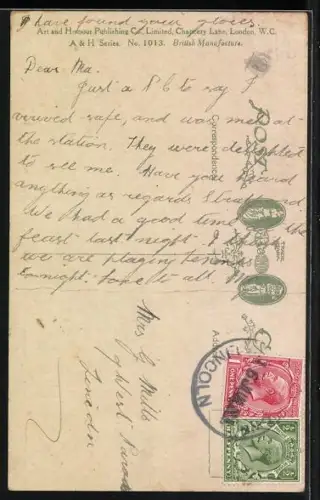 I have found your gloves.
Art and Humour Publishing Co., Limited, Chancery Lane, London, W.C.
A & H Series. No. 1013. British Manufacture.
Dear Ma.
Just a P.C to say I
arrived safe, and was met at
the station. They were delighted
to see me. Have you heard
anything as regards
We had a good time at the
feast last night. I think
we are playing tennis
tonight. Love to all.
POST
Correspondence
Mrs G Mills
Lincoln
LINCOLN